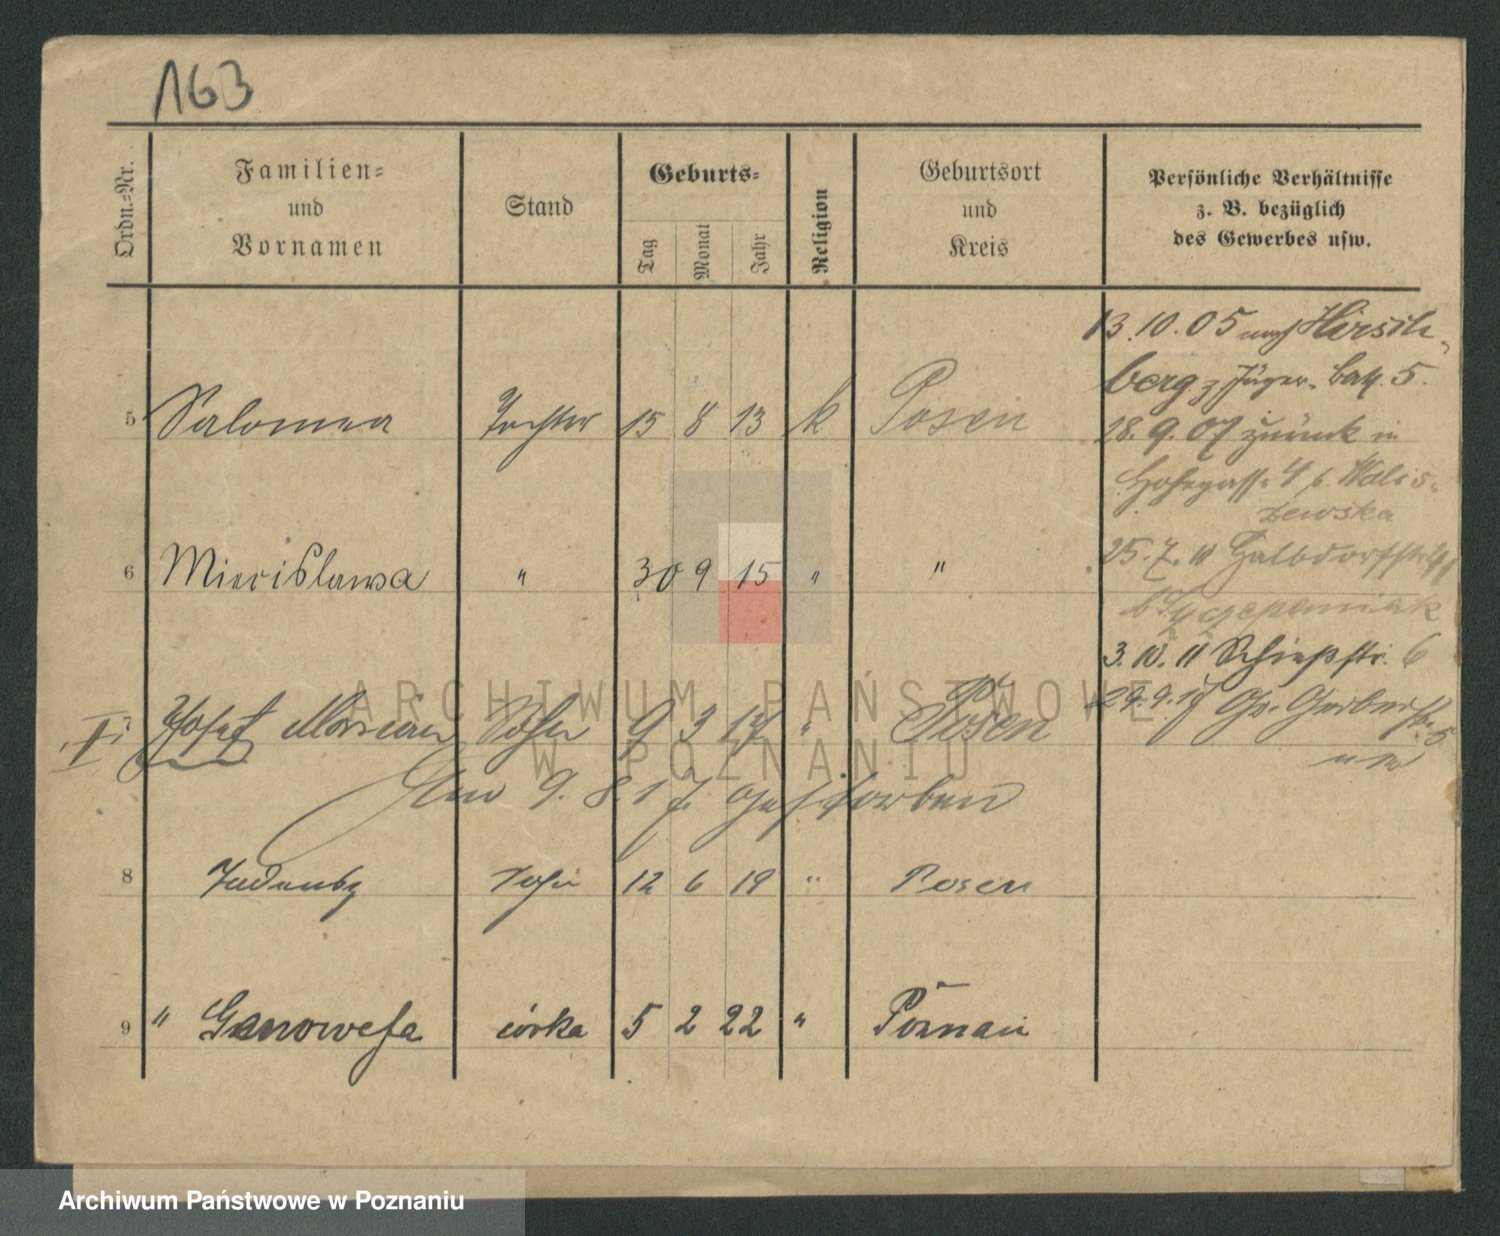 163
Ordn.-Nr.
Familien-
und
Vornamen
Stand
Geburts-
Tag
Monat
Jahr
Religion
Geburtsort
und
Kreis
Persönliche Verhältnisse
z. B. bezüglich
des Gewerbes usw.
5 Salomea Tochter 15 8 13 k Posen
6 Miecislawa " 30 9 15 " "
Josef Marian Sohn 9 3 17 " Posen
Am 9. 8. 17. gestorben
8 Sohn 12 6 19 " Posen
9 " Genowefa córka 5 2 22 " Poznań
13.10.05 nach Hirsch-
berg z Jäger. Batl. 5.
28.9.07 zurück in
Hohegasse 4 b. Walis-
zewska
25.7.11 Halbdorfstr.
b Szczepaniak
3.10.11 Schießstr. 6
29.9.17 Gr. Gerberstr.
ARCHIWUM PAŃSTWOWE
W POZNANIU
Archiwum Państwowe w Poznaniu